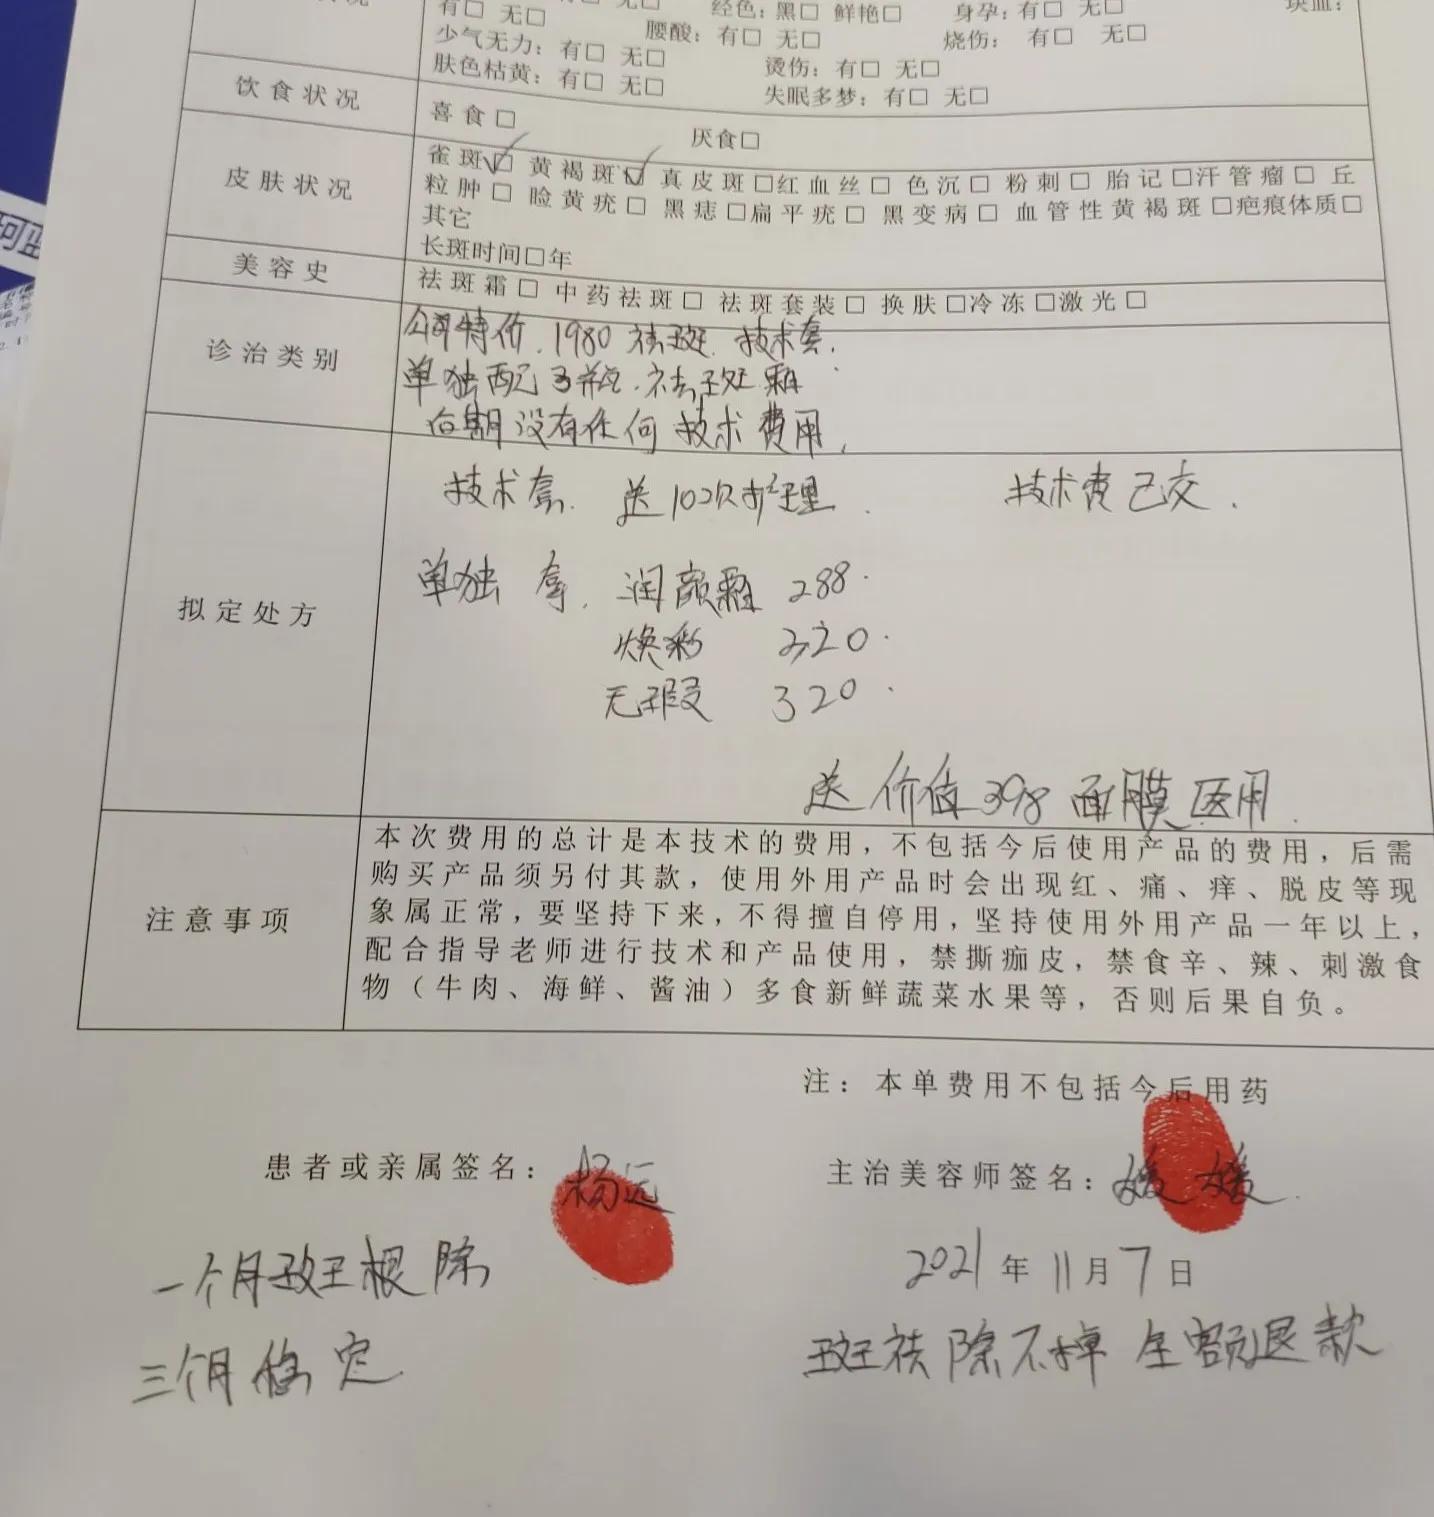 有□ 无□ 经色：黑□ 鲜艳□ 身孕：有□ 无□ 块血：
少气无力：有□ 无□ 腰酸：有□ 无□ 烧伤： 有□ 无□
肤色枯黄：有□ 无□ 烫伤：有□ 无□
失眠多梦：有□ 无□
饮食状况 喜食□ 厌食□
皮肤状况 雀斑□ 黄褐斑□ 真皮斑□红血丝□ 色沉□ 粉刺□ 胎记□汗管瘤□ 丘
粒肿□ 睑黄疣□ 黑痣□扁平疣□ 黑变病□ 血管性黄褐斑□疤痕体质□
其它
长斑时间□年
美容史 祛斑霜□ 中药祛斑□ 祛斑套装□ 换肤□冷冻□激光□
诊治类别 公司特价.1980 祛斑.技术套.
单独配3瓶.祛斑霜
后期没有任何技术费用.
技术套. 送10次护理. 技术费已交.
拟定处方
单独拿. 润颜霜 288.
焕彩 220.
无瑕 320.
送价值398面膜医用.
注意事项
本次费用的总计是本技术的费用，不包括今后使用产品的费用，后需
购买产品须另付其款，使用外用产品时会出现红、痛、痒、脱皮等现
象属正常，要坚持下来，不得擅自停用，坚持使用外用产品一年以上，
配合指导老师进行技术和产品使用，禁撕痂皮，禁食辛、辣、刺激食
物（牛肉、海鲜、酱油）多食新鲜蔬菜水果等，否则后果自负。
注：本单费用不包括今后用药
患者或亲属签名：杨远 主治美容师签名：媛媛.
一个月斑根除 2021年11月7日
三个月稳定. 斑祛除不掉 全额退款